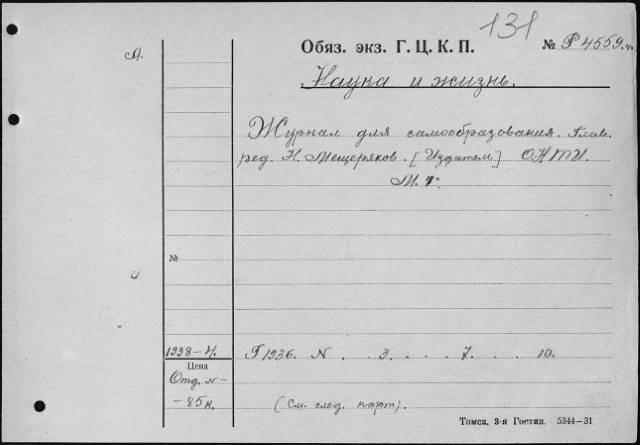 131
Обяз. экз. Г. Ц. К. П. № Р4559.ч.
Наука и жизнь.
Журнал для самообразования. Глав.
ред. Н. Мещеряков. [Издатель] ОНТИ.
М.
№
1938-4. Г1936. N. . 3. . . . 7. . . 10.
Цена
Отд. №-
-85к.
(См. след. карт).
Томск, 3-я Гостип. 5344—31